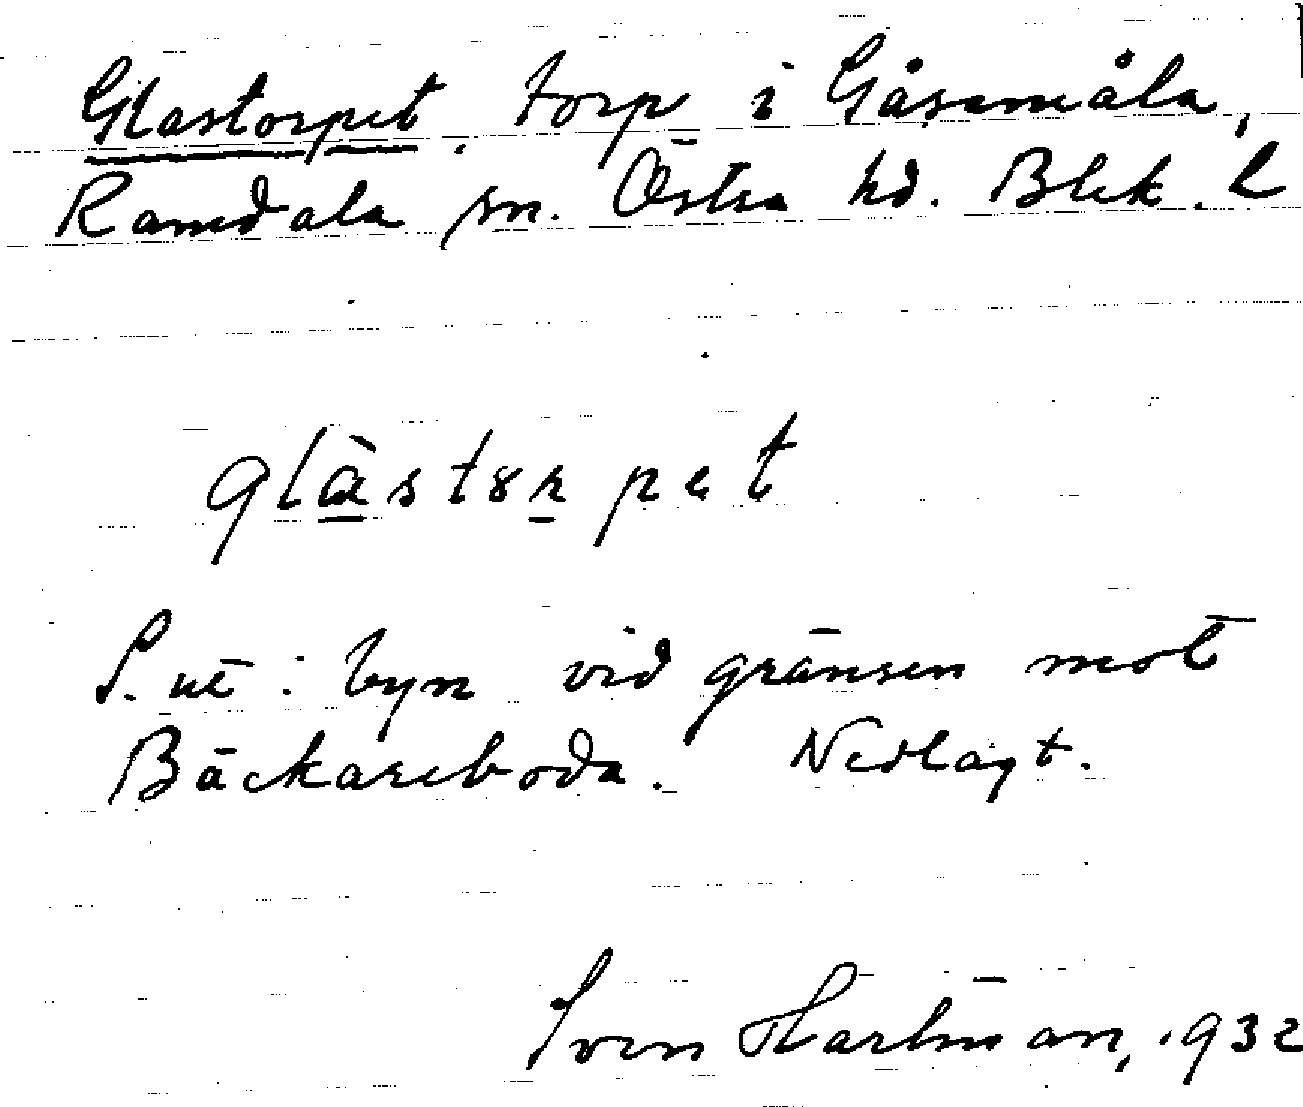 Glastorpet, torp i Gåsamåla,
Ramdala sn. Östra hd. Blek. l
glàstȣrpet
S. ut i byn vid gränsen mot
Bäckareboda. Nedlagt.
Sven Hartman, 1932